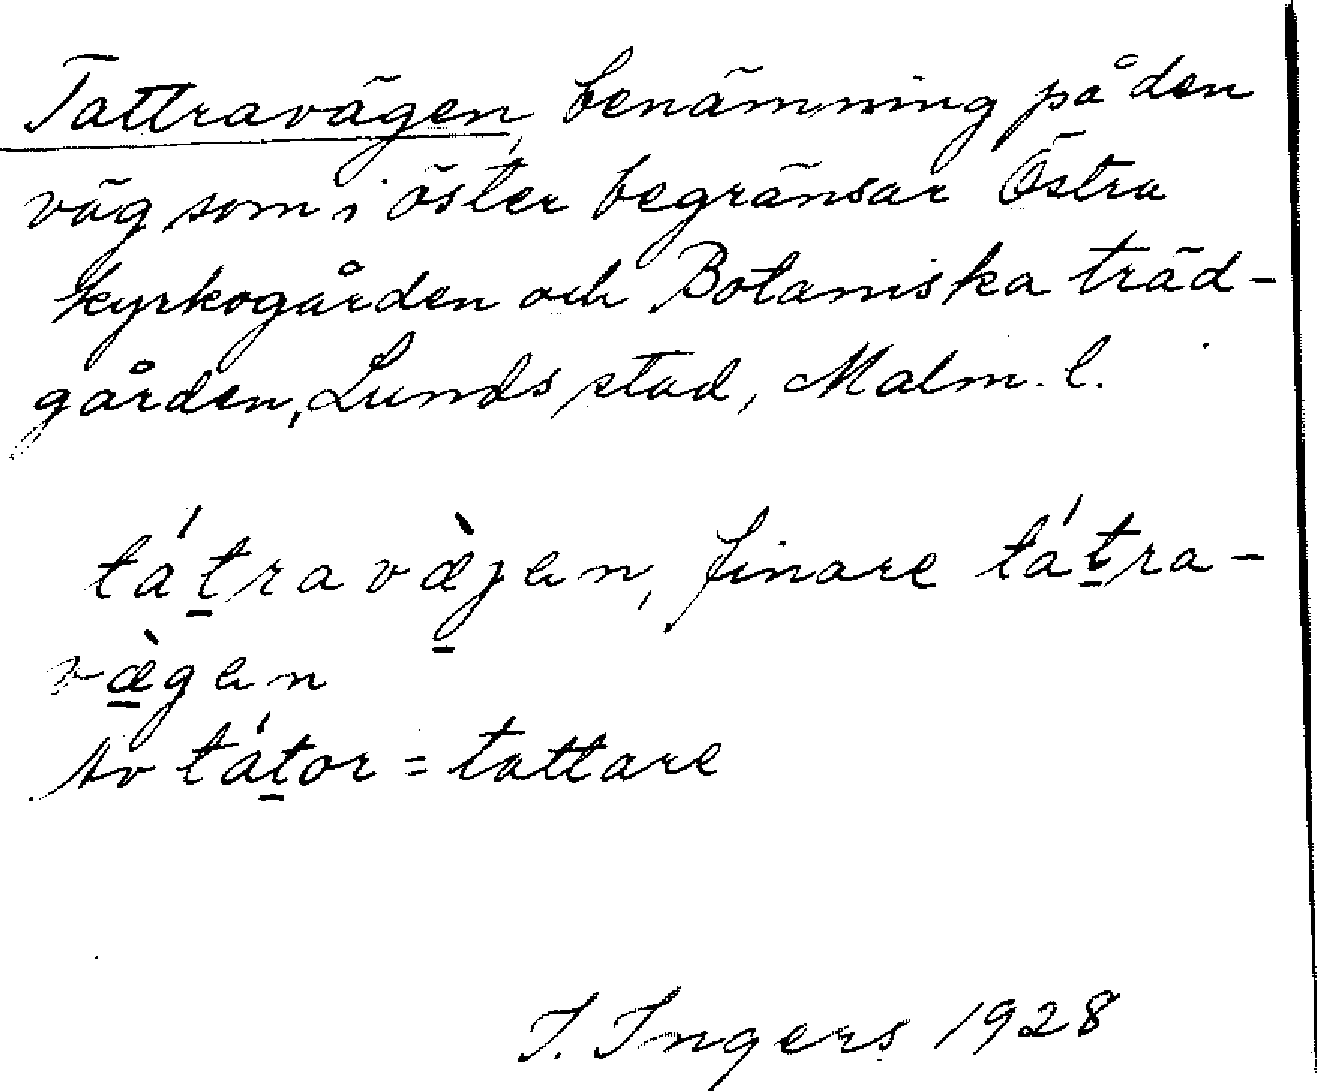 Tattravägen, benämning på den
väg som i öster begränsar Östra
kyrkogården och Botaniska träd-
gården, Lunds stad, Malm. l.
tát̲ravæ̲̀jen, finare tát̲ra-
væ̲̀gen
Av tát̲or = tattare
I. Ingers 1928